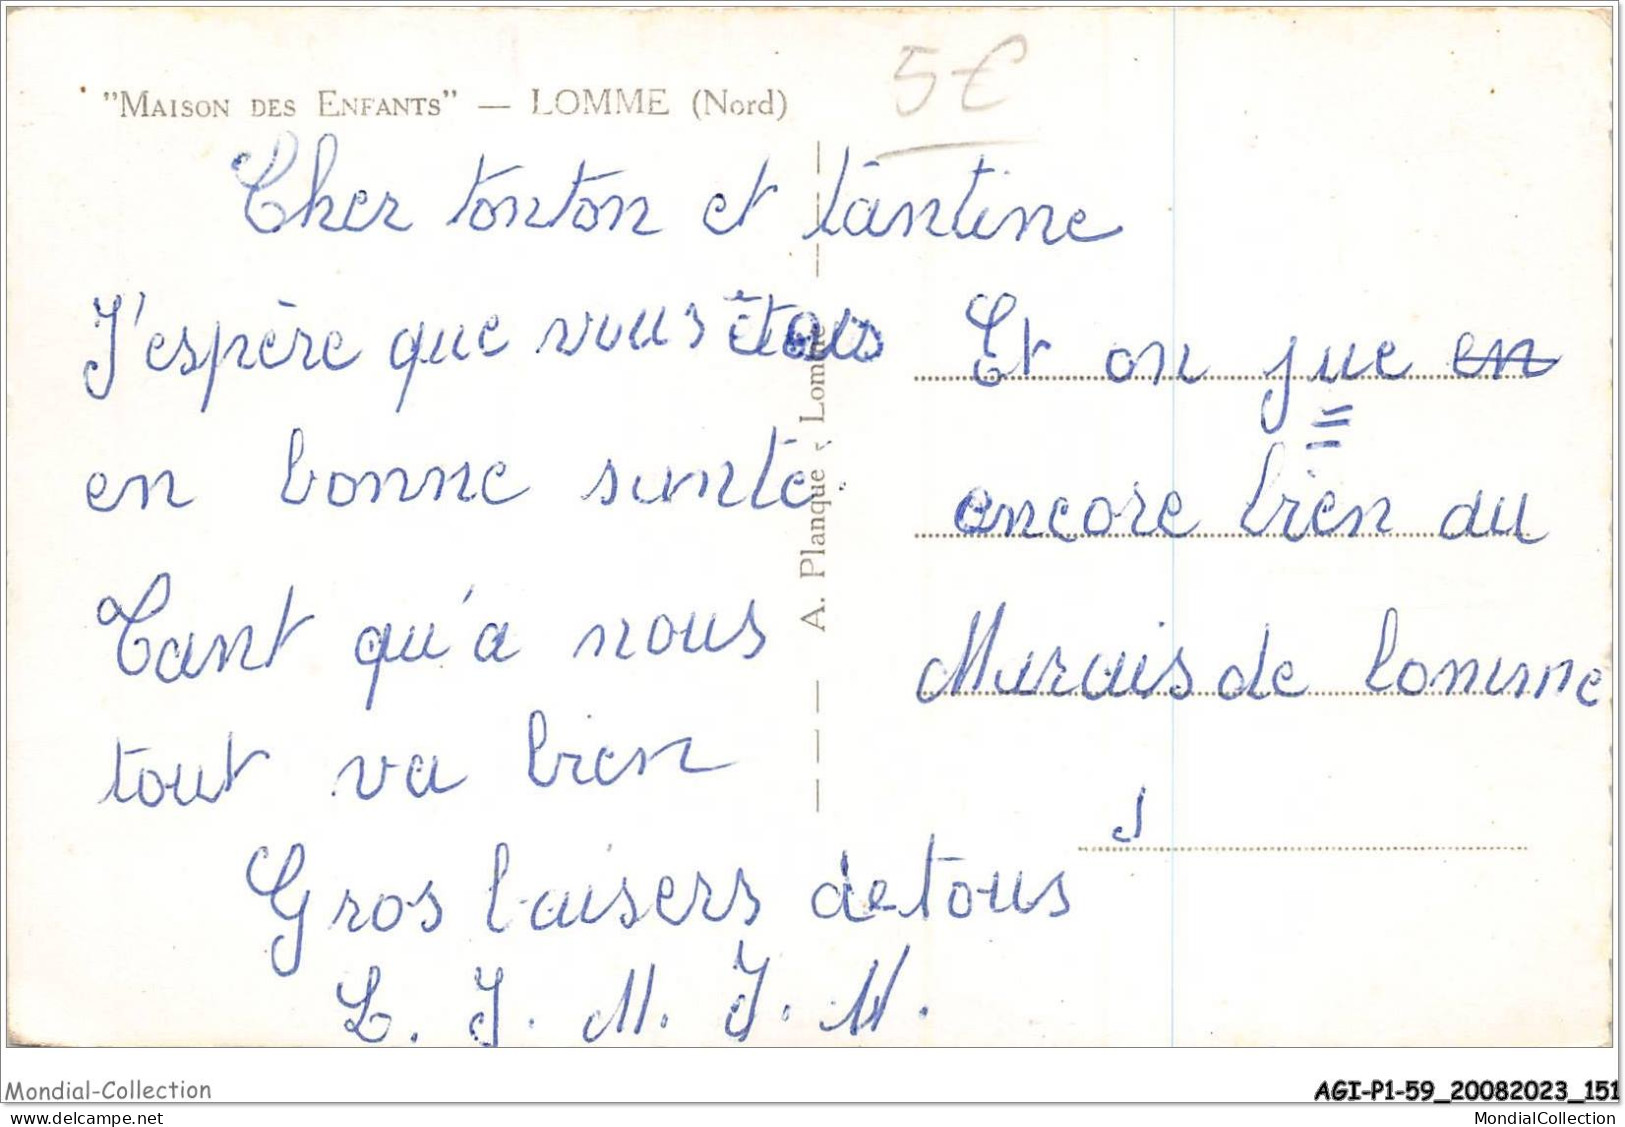 "MAISON DES ENFANTS" — LOMME (Nord)
5€
Cher tonton et tantine
J'espère que vous êtes
en bonne santé.
Tant qu'a nous
tout va bien
Gros baisers de tous
L. J. M. J. M.
A. Planque, Lomme
Et on jue en
encore bien au
Marais de lomme
Mondial-Collection
AGI-P1-59_20082023_151
MondialCollection